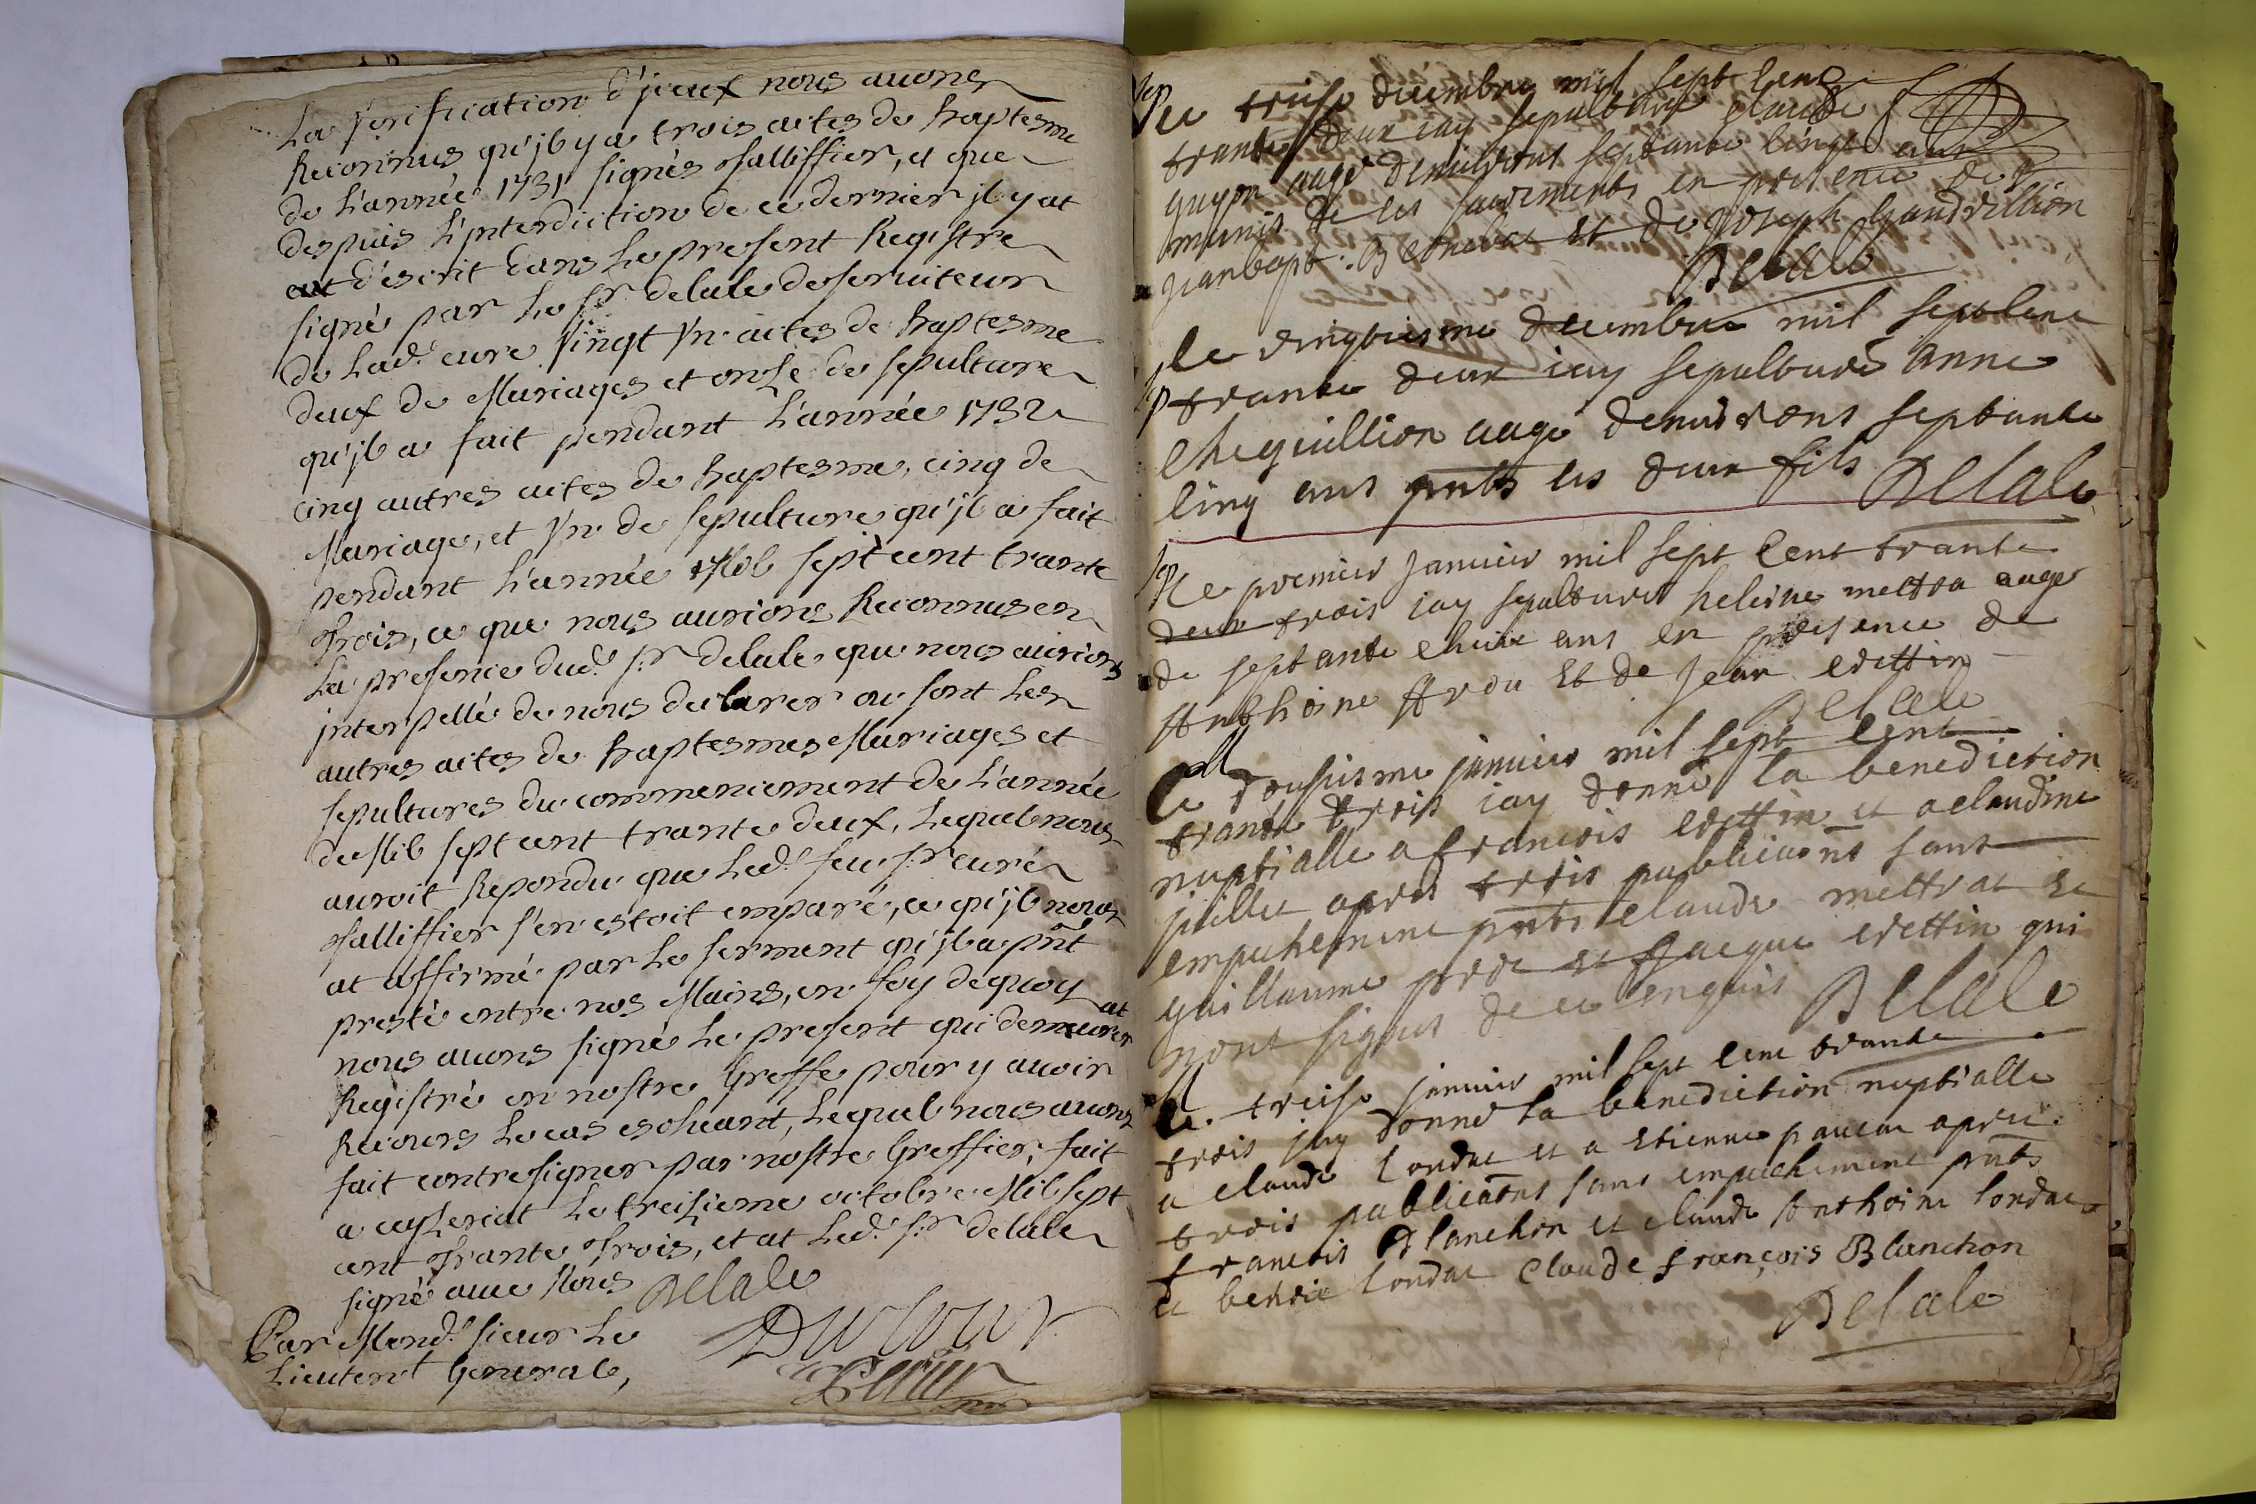 La Verification d'jceux nous auons
Reconnus qu'jl y a trois actes de baptesme
de L'année 1731 signés falliffier, et que
despuis L'jnterdiction de ce dernier jl y at
eut d'escrit dans Le present Registre
signé par Le Sr delale deseruiteur
de Lad. cure Vingt Vn actes de baptesme
deux de Mariages et onse de sepulture
qu'jl a fait pendant L'année 1732
cinq autres actes de baptesme, cinq de
Mariage, et Vn de sepulture qu'jl a fait
pendant L'année Mil sept cent trante
Trois, ce que nous aurions Reconnus en
La presence dud. Sr delale que nous aurions
jnterpellé de nous declarer ou sont Les
autres actes de baptesmes Mariages et
sepultures du commencement de L'année
de Mil sept cent trante deux, Lequel nous
auroit Repondu que Led. feu Sr curé
falliffier s'en estoit emparé, ce qu'jl nous
at affirmé par Le serment qu'jl a pnt
presté entre nos Mains, en foy de quoy
nous auons signé Le present qui demeurer at
Registré en nostre Greffe pour y auoir
Recours Le cas escheant, Lequel nous auons
fait contresigner par nostre Greffier, fait
a ceyzeriat Le treisieme octobre Mil sept
cent Trante Trois, et at Led. Sr delale
signé auec Nous Delale
Par Mond. sieur Le
Lieutent General,
Sep
Le treise decembre mil sept cent
trante deux iay sepulturé claude
guyon aagé denuirons septante cinq ans
munis de ses sacrements en presence de
jean bapt. et de joseph
Delale
Le vingtiesme decembre mil sept cent
trante deux iay sepulturé anne
cheguillion aagé denuirons septante
cinq ans pnts ses deux fils Delale
Sep
Le premier januier mil sept cent trante
deux trois iay sepulturer heleine mettra aagé
de septante ans en presence de
Anthoine Arou et de jean crettin
Delale
M
Le dousiesme januier mil sept cent
trante trois iay donné la benediction
nuptialle a francois crettin et a claudine
juillet apres trois publications sans
empechement pnts claude mettrat et
guillaume et jacque crettin qui
nont signes de ce enquis Delale
M
Le treise januier mil sept cent trante
trois jay donné la benediction nuptialle
a claude londac et a Etienne apres
trois publications sans empechement pnts
francois Blanchon et claude Anthoine londac
et benoit londac Claude françois Blanchon
Delale